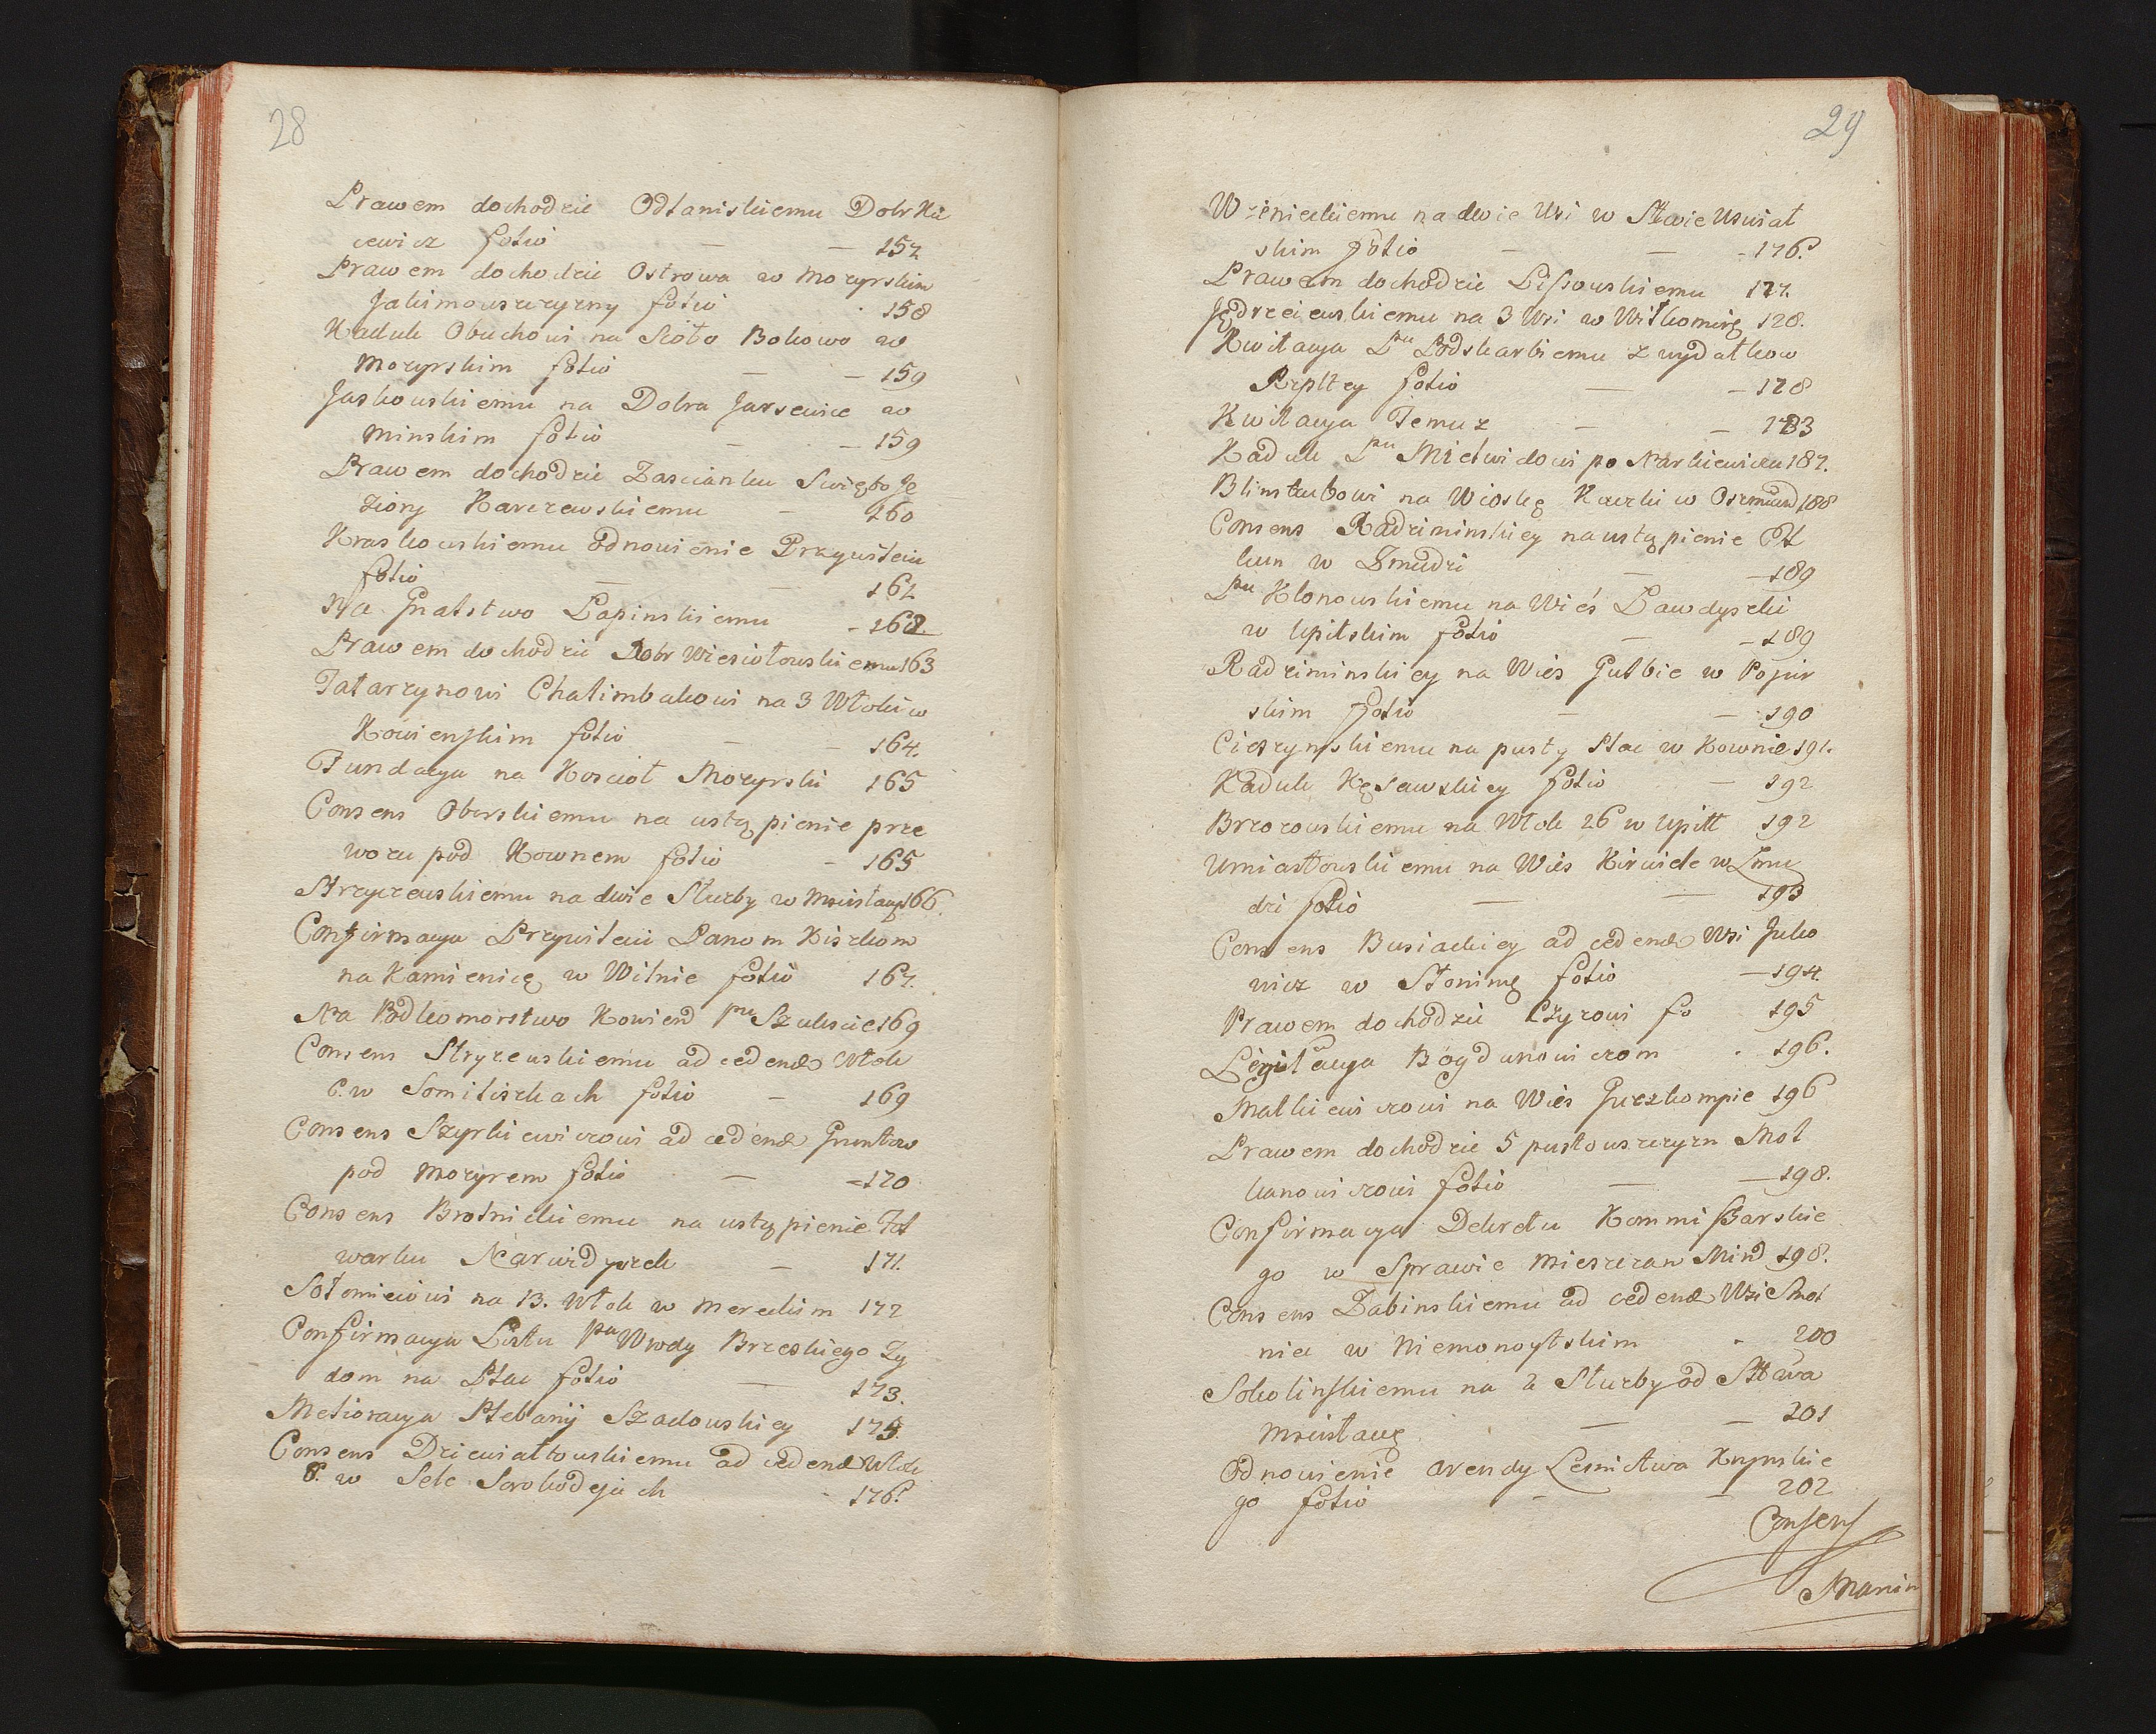 28
Prawem dochodzic Odlaniskiemu Dobr Ku
cewicz folio — — 157
Prawem dochodzic Ostrowa w Mozyrskim
Jakimowszczyzny folio - 158
Kaduk Obuchowi na Sioło Bokowo w
Mozyrskim folio — — 159
Jaskowskiemu na Dobra Jarsewice w
Minskim folio — — 159
Prawem dochodzic Zascianku Swięto Je
ziory Karczewskiemu — 160
Kraskowskiemu odnowienie Przywileiu
folio — — 162
Na Ciwunstwo Łapinskiemu - 162
Prawem dochodzic Dobr Wiesiołowskiemu 163
Tatarzynowi Chalimbekowi na 3 Włoki w
Kowienskim folio — — 164.
Fundacya na Kosciół Mozyrski 165
Consens Oborskiemu na ustąpienie prze
wozu pod Kownem folio - 165
Strzyżewskiemu na dwie Służby w Mscisławs 166.
Confirmacya Przywileiu Panom Kiszkom
na Kamienicę w Wilnie folio 167.
Na Podkomorstwo Kowien Pu Szukscie 169
Consens Stryżewskiemu ad cedend Włok
6. w Somiliszkach folio — 169
Consens Szyrkiewiczowi ad cedend Gruntow
pod Mozyrem folio — - 170
Consens Brolnickiemu na ustąpienie Fol
warku Narwidyszek — 171.
Sołomieiowi na 13. Włok w Mereckim 172
Confirmacya Listu Pa Wwody Brzeskiego Zy
dom na Plac folio — 173.
Melioracya Plebanij Szadowskiey 175.
Consens Dziewiałtowskiemu ad cedend Włok
8. w Sele Sorokodzjach - 176.
29
Wzienieckiemu na dwie Wsi w Sttwie Uswiat
skim folio — — - 176.
Prawem dochodzic Lissowskiemu 177.
Jędrzeiewskiemu na 3 Wsi w Wiłkomirs 178.
Kwitacya Pu Podskarbiemu z wydatkow
Rzpltey folio — — 178
Kwitacya Temuz — — 183
Kaduk Pu Mietwidowi po Narkiewiczu 187.
Blinstrubowi na Wioskę Kuczki w Oszmian 188
Consens Radziminskiey na ustąpienie Pt
kun w Zmudzi — — 189
Pu Klonowskiemu na Wieś Lawdyszki
w Upitskim folio — — 189
Radziminskiey na Wies Gulbie w Pojur
skim folio — — 190
Cieszynskiemu na pusty Plac w Kownie 191.
Kaduk Kęsewskiey folio — 192
Brzozowskiemu na Włok 26 w Upitt 192
Umiastowskiemu na Wies Kirwiele w Zmu
dzi folio — — 193
Consens Busiackiey ad cedend Wsi Juko
wicz w Słonims folio — 194.
Prawem dochodzic Czyzowi fo 195
Legitacya Bogdanowiczom - 196.
Malkiewiczowi na Wies Gurzkompie 196
Prawem dochodzic 5 pustowszczyzn Moł
kanowiczowi folio — — 198.
Confirmacya Dekretu Kommissarskie
go w Sprawie Mieszczan Min 198.
Consens Zabinskiemu ad cedend Wsi Smol
nic w Niemonoytskim - 200
Sokolinskiemu na 2 Służby od Sttwa
Mscisławs — — 201
Odnowienie Arendy Lesnictwa Krynskie
go folio — — 202
Consens